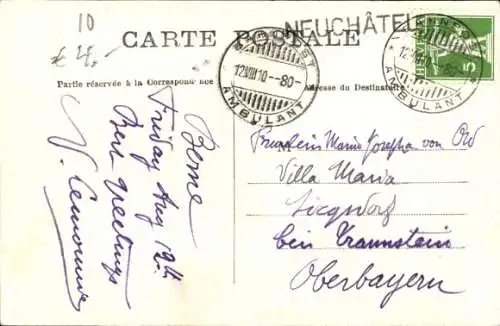 10
£ 4.-
CARTE POSTALE
NEUCHÂTEL
BAHNPOST
12.VIII.10 --80-
AMBULANT
BAHNPOST
12.VIII.10 --80-
AMBULANT
5
Partie réservée à la Correspondance
Adresse du Destinataire
Berne
Friday Aug 12th
Best Greetings
V.
Fräulein Maria Josepha von Ow
Villa Maria
Siegsdorf
bei Traunstein
Oberbayern